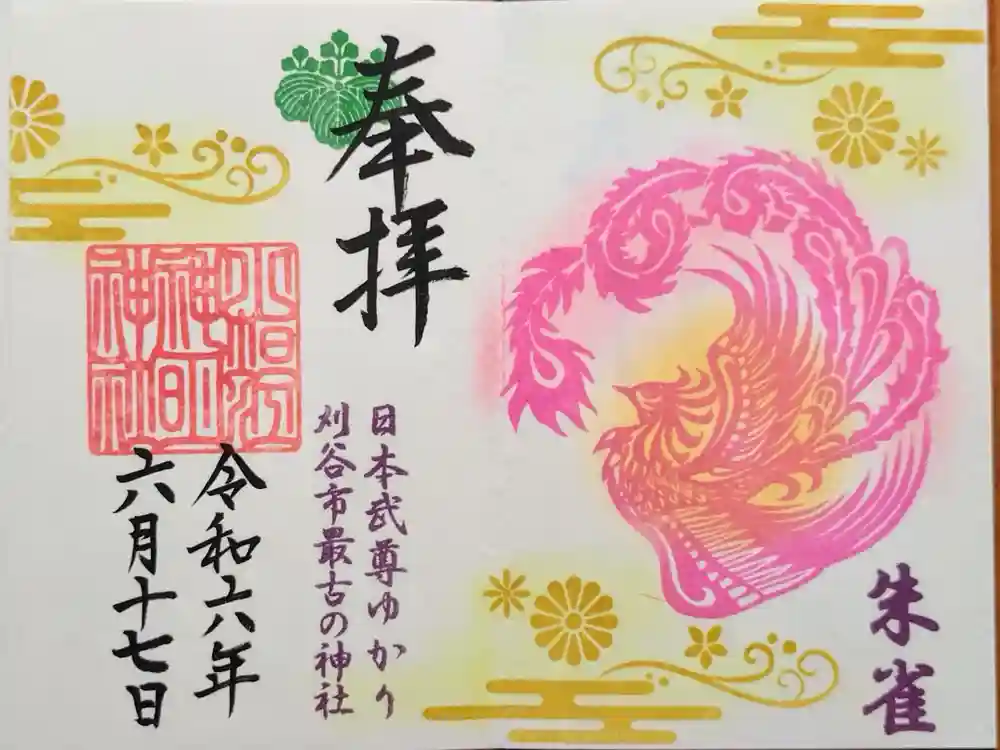 朱雀
奉拝
日本武尊ゆかり
刈谷市最古の神社
令和六年
六月十七日